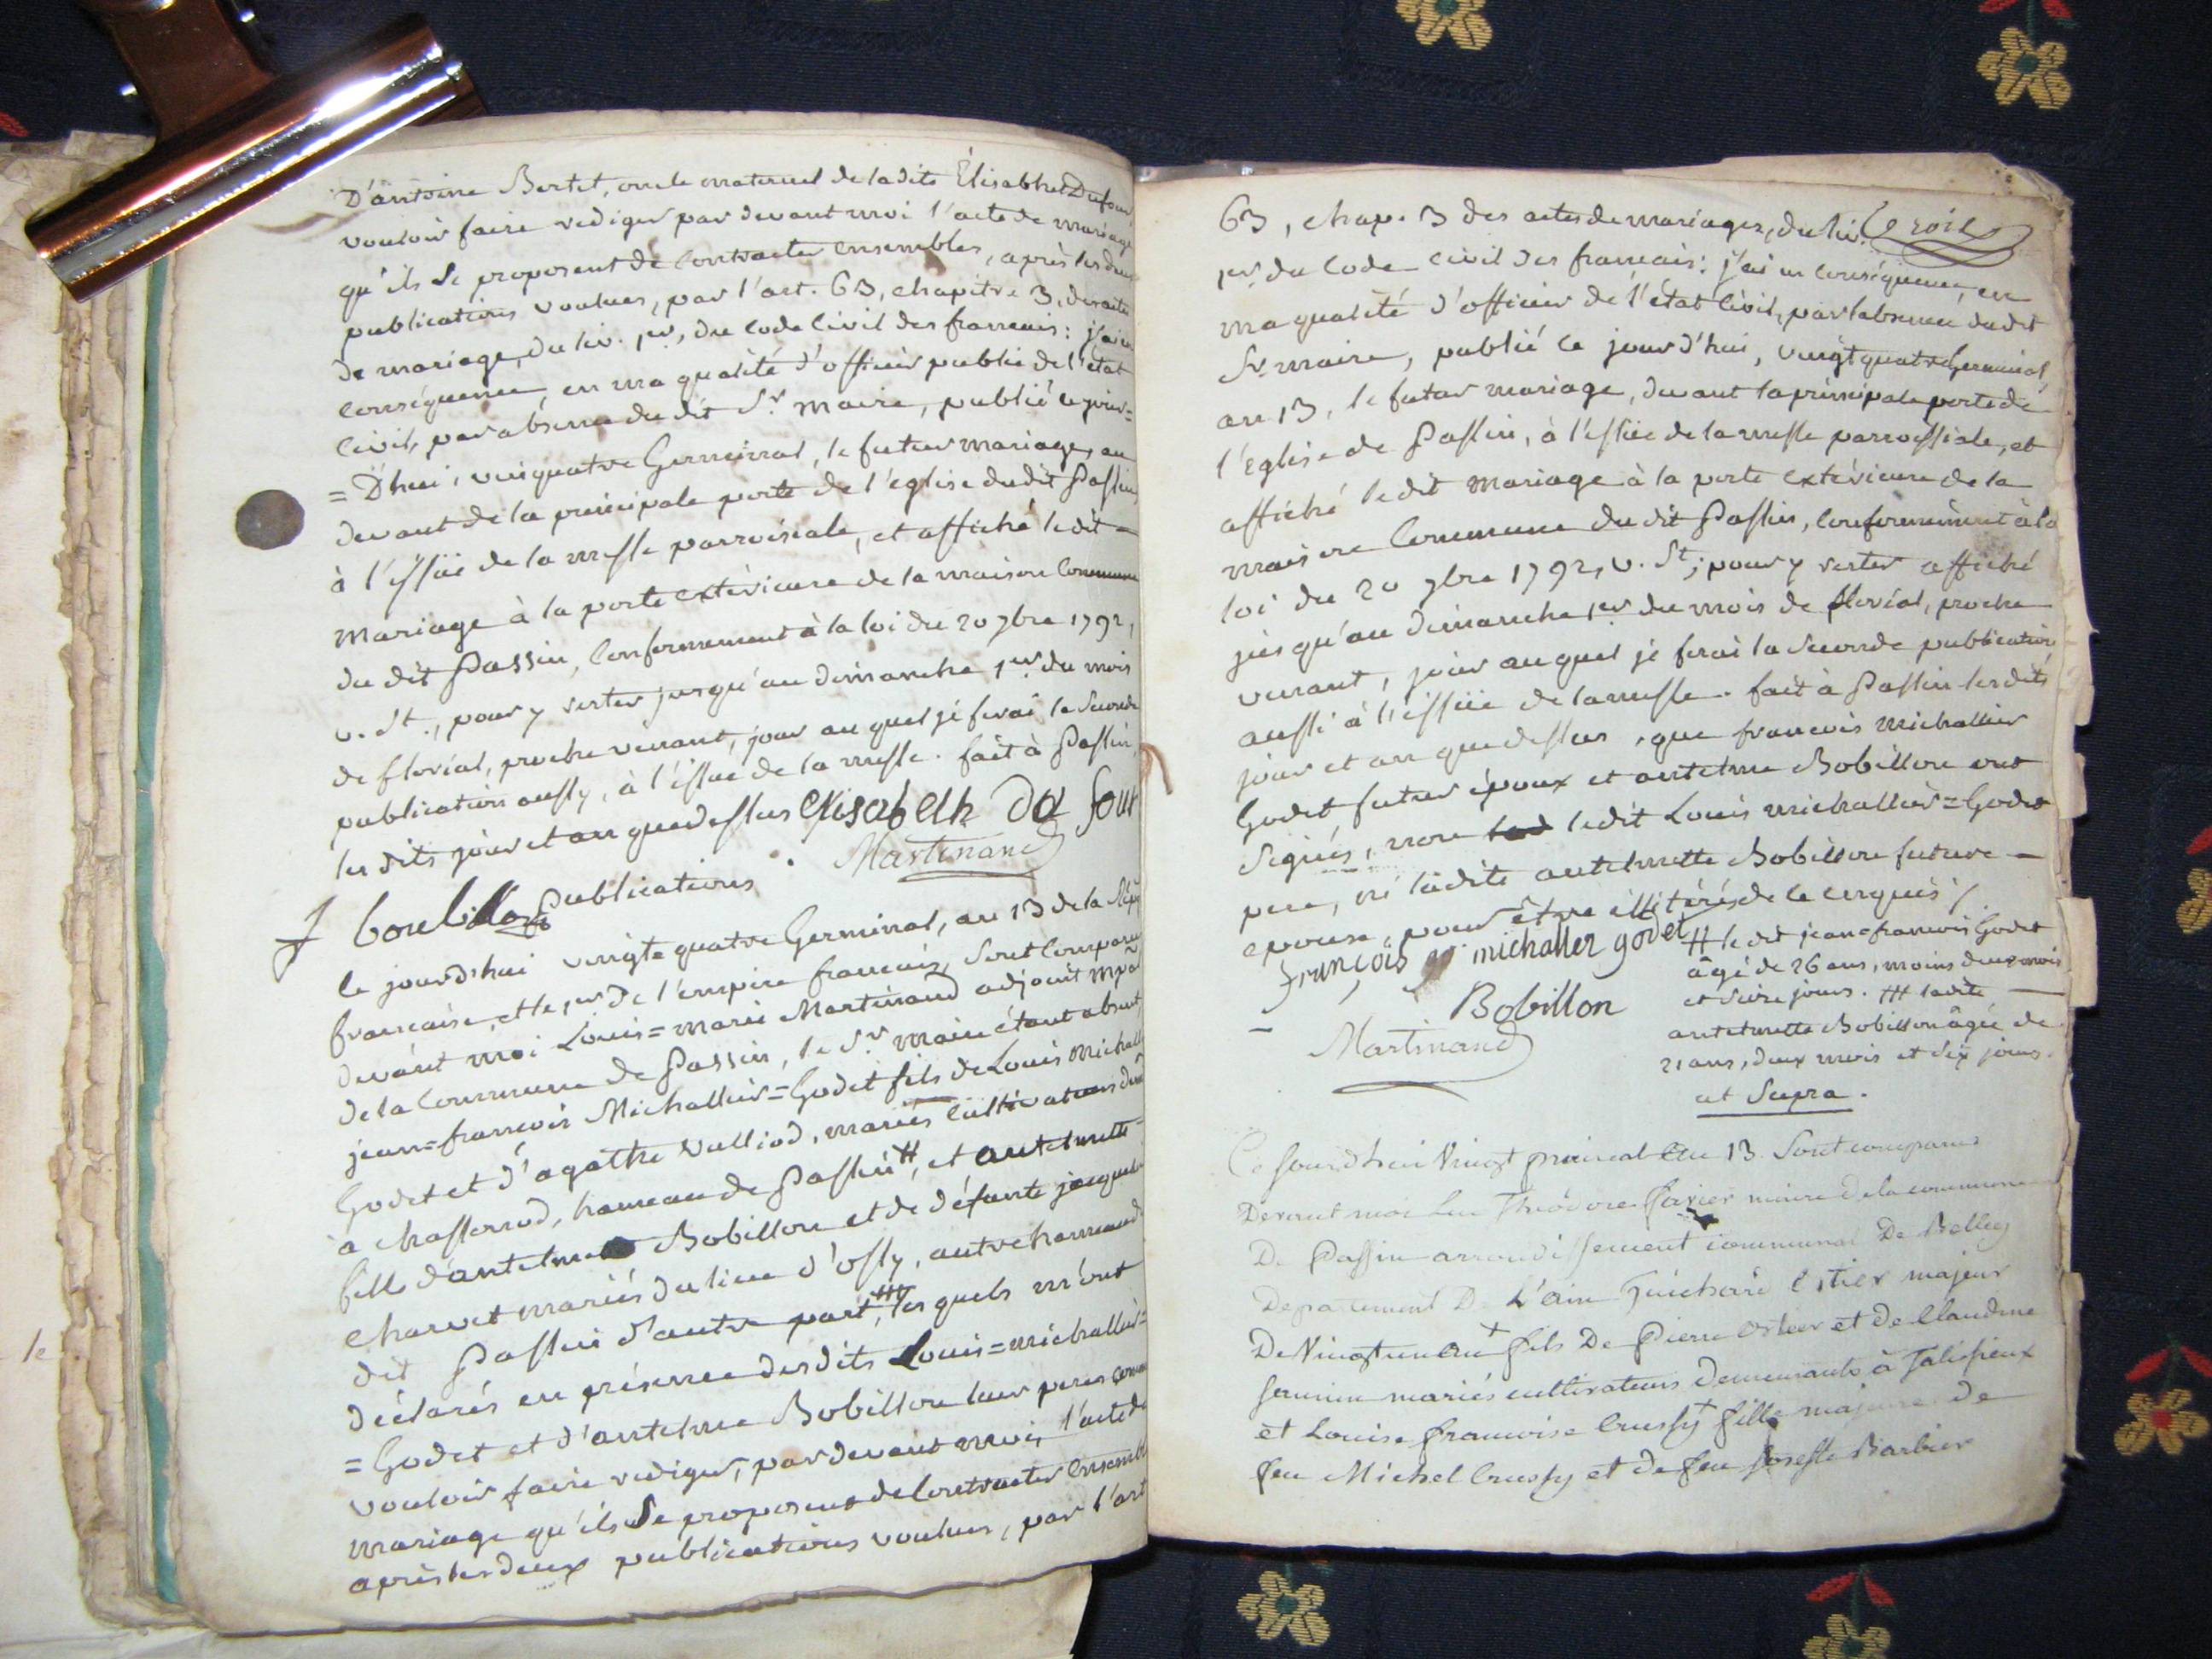 D'antoine Bertet, oncle maternel de ladite Élisabhet Dufour
vouloir faire rediger par devant moi l'acte de mariage
qu'ils se proposent de contracter ensembles, après les deux
publications voulues, par l'art. 63, chapitre 3, des actes
de mariage, du liv. 1er, du code civil des francais: j'ai en
conséquence, en ma qualité d'officier public de l'état
civil, par absence du dit Sr. maire, publié ce jour=
=D'hui, vinquatre Germinal, le futur mariage, au
devant de la principale porte de l'eglise du dit Passin,
à l'issüe de la messe parroisiale, et affiché le dit
mariage à la porte extérieure de la maison commune
du dit Passin, conformement à la loi du 20 7bre 1792,
v. St., pour y rester jusqu'au dimanche 1er du mois
de floréal, proche venant, jour au quel je ferai la seconde
publication aussy, à l'issue de la messe. fait à Passin,
les dits jour et an que dessus Elisabeth Du four
Martinand
J boubillon publications
le jourd'hui vingte quatre Germinal, an 13 de la Rép
francaise, et le 1er de l'empire francais, sont comparu
devant moi Louis=marie Martinand adjoint mpal
de la commune de Passin, le Sr. maire étant absent,
jean=francois Michallier=Godet fils de Louis michall
Godet et d'agathe Valliod, mariés cultivateurs dem
à chassonod, hameau de Passin #, et antelmette
fille d'antelme Bobillon et de défunte jacqueli
charvet mariés du lieu d'ossy, autre hameau du
dit Passin d'autre part, ### les quels m'ont
déclarés en présence desdits Louis=michallier=
=Godet et d'antelme Bobillon leur peres comm
vouloir faire rediger, par devant moi, l'acte de
mariage qu'ils se proposent de contracter ensemble
après les deux publications voulues, par l'art
63, chap. 3 des actes de mariages, du liv.
1er du code civil des francais: j'ai en conséquence, en
ma qualité d'officier de l'état civil, par l'absence dudit
Sr. maire, publié ce jourd'hui, vingt quatre Germinal,
an 13, le futur mariage, devant la principale porte de
l'Eglise de Passin, à l'issüe de la messe parroissiale, et
affiché ledit mariage à la porte extérieure de la
maison commune du dit Passin, conformément à la
loi du 20 7bre 1792, v. St; pour y rester affiché
jusqu'au dimanche 1er du mois de floréal, proche
venant, jour auquel je ferai la seconde publication
aussi à l'issüe de la messe. fait à Passin les dits
jour et an que dessus, que francois michallier
Godet futur époux et antelme Bobillon ont
signés, non ledit Louis michallier=Godet
pere, ni ladite antelmette Bobillon future
epouse, pour être illitérés de ce enquis /.
François michaller godet
Bobillon
Martinand
# le dit jean=francois Godet
âgé de 26 ans, moins deux mois
et seize jours. ### ladite
antelmette Bobillon âgée de
21 ans, deux mois et dix jours.
ut supra.
Ce jourd'hui Vingt prairéal an 13. Sont comparus
Devant moi Luc Théodore Savier maire de la commune
De Passin arrondissement communal De Belley
Departement De L'ain Guichard Ostier majeur
De Vingt un an + fils De Pierre Ostier et de Claudine
mariés cultivateurs demeurants à Talissieux
et Louise francoise Crussy + fille majeure de
feu Michel Crussy et de feu Joseste Barbier